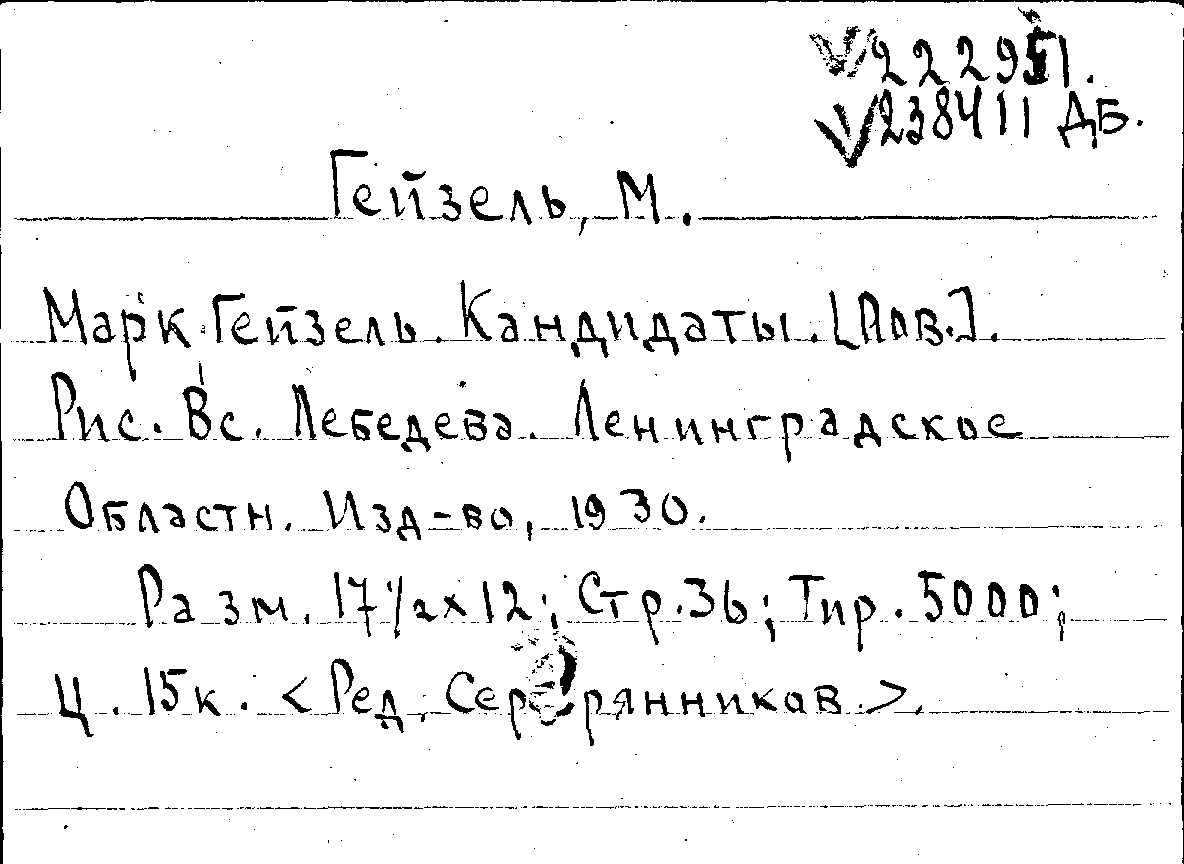 √222951.
√238411 ДБ.
Гейзель, М.
Марк Гейзель. Кандидаты. [Пов.].
Рис. Вс. Лебедева. Ленинградское
Областн. Изд-во, 1930.
Разм. 17½x12; Стр. 36; Тир. 5000;
Ц. 15к. <Ред. Серебрянников.>.